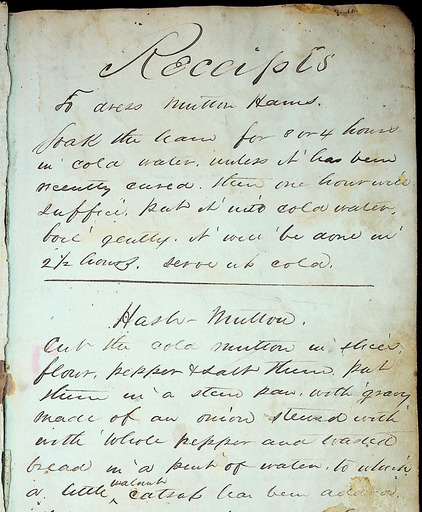 Receipts
To dress Mutton Hams.
Soak the ham for 3 or 4 hours
in cold water, unless it has been
recently cured. then one hour will
suffice. put it into cold water,
boil gently. it will be done in
2½ hours. serve up cold.
Hash-Mutton.
Cut the cold mutton in slices,
flour, pepper & salt them, put
them in a stew pan, with gravy
made of an onion stewed with
with whole pepper and toasted
bread in a pint of water, to which
a little walnut catsup has been added.